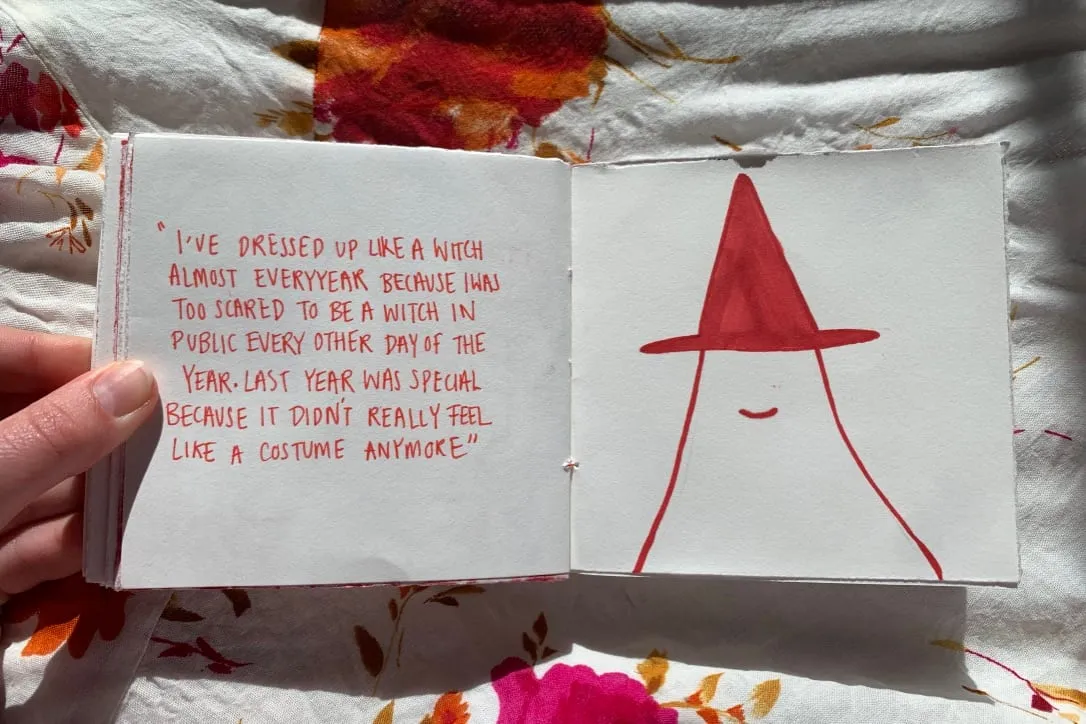 "I'VE DRESSED UP LIKE A WITCH
ALMOST EVERYYEAR BECAUSE I WAS
TOO SCARED TO BE A WITCH IN
PUBLIC EVERY OTHER DAY OF THE
YEAR. LAST YEAR WAS SPECIAL
BECAUSE IT DIDN'T REALLY FEEL
LIKE A COSTUME ANYMORE"